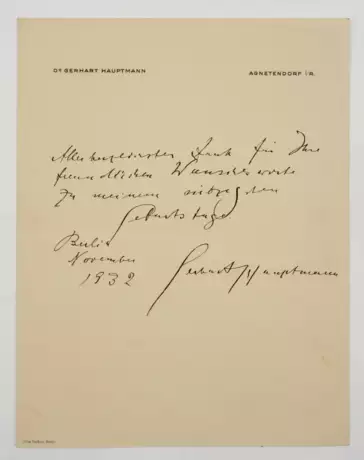 Dr GERHART HAUPTMANN
AGNETENDORF i/R.
Allerherzlichsten Dank für Ihre
freundlichen Wunschworte
zu meinem siebzigsten
Geburtstage
Berlin
November
1932
Gerhart Hauptmann